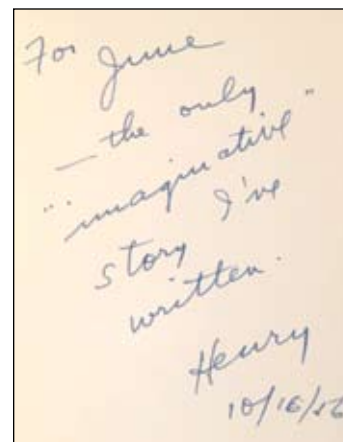 For June
— the only
"imaginative"
story I've
written.
Henry
10/16/56